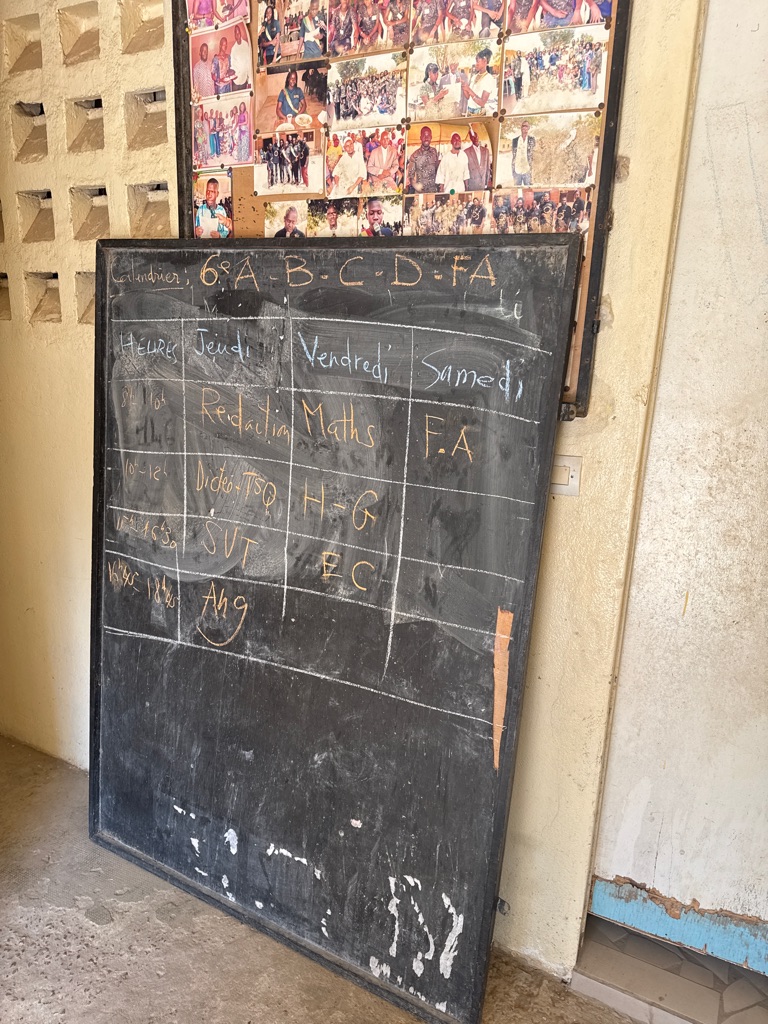 Calendrier, 6e A - B - C - D - FA
HEURES Jeudi Vendredi Samedi
8h 10h Redaction Maths F.A
10h-12h Dictée-TSQ H-G
SVT EC
16h45- 18h45 Ang